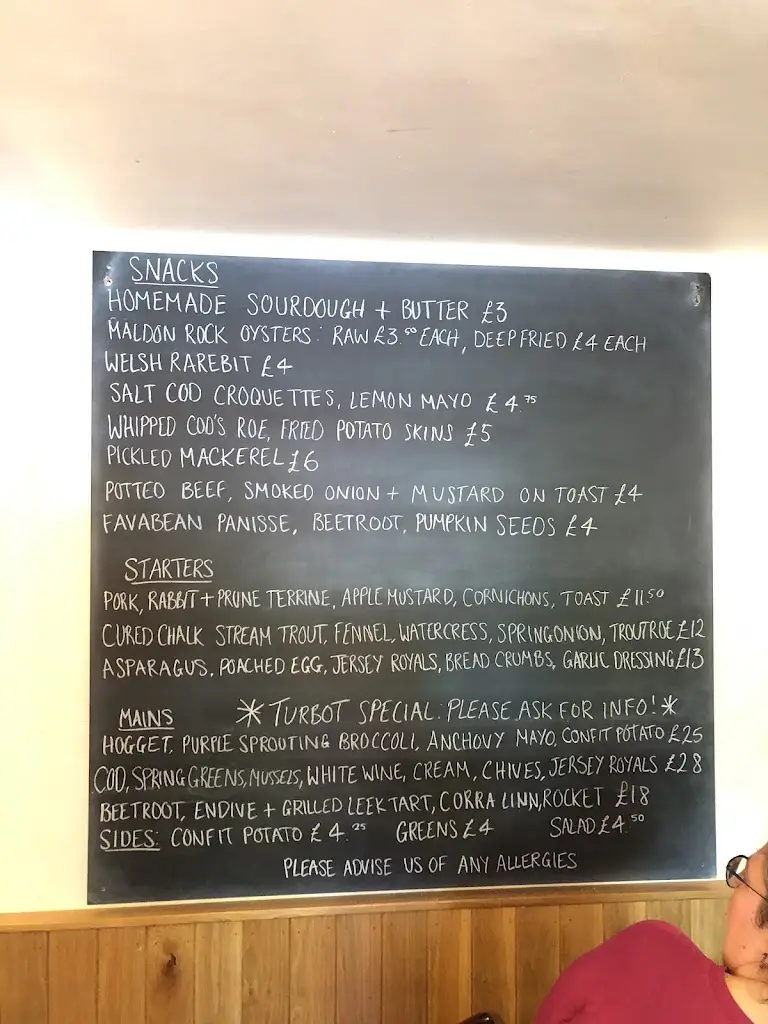 SNACKS
HOMEMADE SOURDOUGH + BUTTER £3
MALDON ROCK OYSTERS: RAW £3.50 EACH, DEEP FRIED £4 EACH
WELSH RAREBIT £4
SALT COD CROQUETTES, LEMON MAYO £4.75
WHIPPED COD'S ROE, FRIED POTATO SKINS £5
PICKLED MACKEREL £6
POTTED BEEF, SMOKED ONION + MUSTARD ON TOAST £4
FAVABEAN PANISSE, BEETROOT, PUMPKIN SEEDS £4
STARTERS
PORK, RABBIT + PRUNE TERRINE, APPLE MUSTARD, CORNICHONS, TOAST £11.50
CURED CHALK STREAM TROUT, FENNEL, WATERCRESS, SPRING ONION, TROUT ROE £12
ASPARAGUS, POACHED EGG, JERSEY ROYALS, BREAD CRUMBS, GARLIC DRESSING £13
MAINS * TURBOT SPECIAL: PLEASE ASK FOR INFO! *
HOGGET, PURPLE SPROUTING BROCCOLI, ANCHOVY MAYO, CONFIT POTATO £25
COD, SPRING GREENS, MUSSELS, WHITE WINE, CREAM, CHIVES, JERSEY ROYALS £28
BEETROOT, ENDIVE + GRILLED LEEK TART, CORRA LINN, ROCKET £18
SIDES: CONFIT POTATO £4.25 GREENS £4 SALAD £4.50
PLEASE ADVISE US OF ANY ALLERGIES